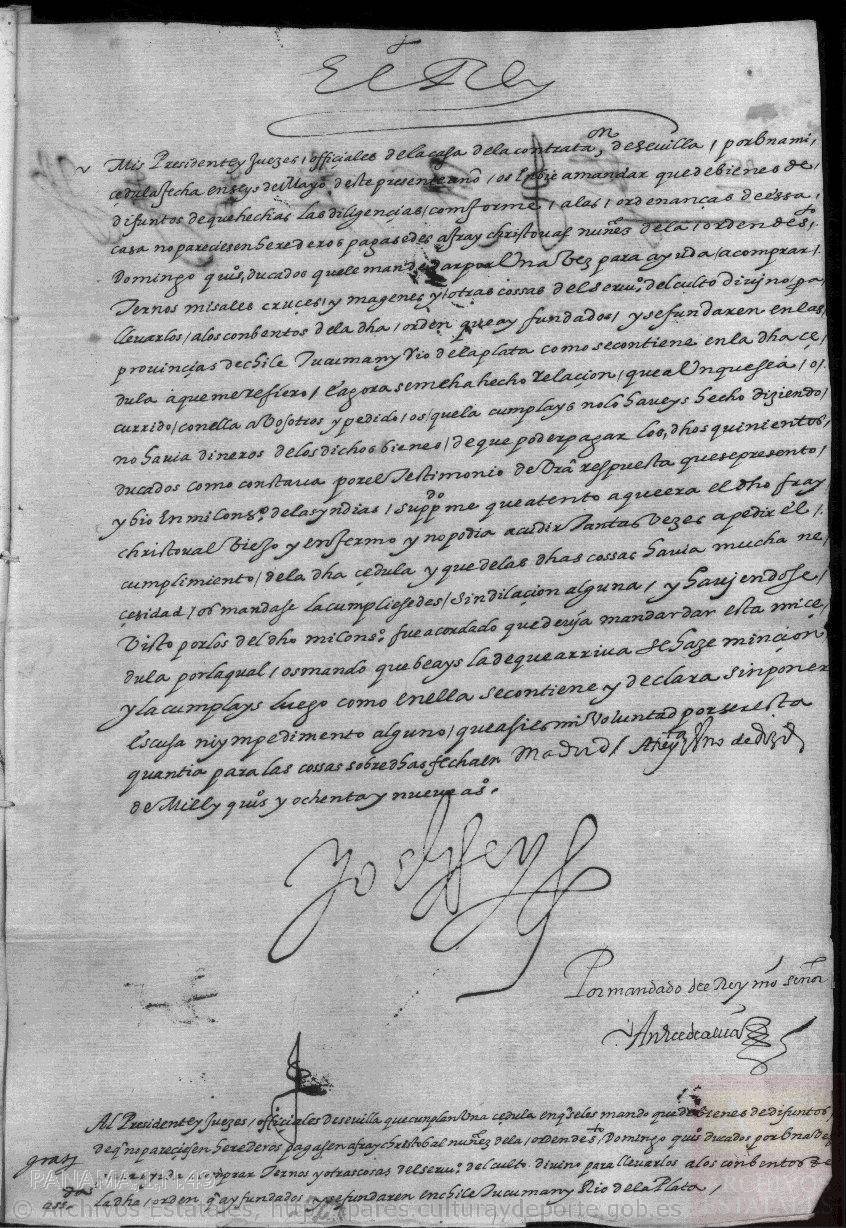 El Rey
Mis Presidente y Juezes, officiales de la casa de la contrataon, de sevilla, por una mi,
çedula fecha en seys de Mayo, deste presente año, os envie a mandar que de bienes de,
difuntos de que hechas las diligençias, comforme, a las, ordenanças de essa,
casa no pareciesen herederos pagasedes a fray christoval nuñez de la, orden de sto,
Domingo quios, ducados que le mande dar por una vez para ayuda, a comprar,
Ternos misales cruçes, y magenes y, otras cossas del seruio, del culto diuino, pa,
lleuarlos, a los conbentos de la dha, orden que ay fundados, y se fundaren en las,
prouinçias de chile Tucuman y Rio de la plata como se contiene en la dha çe,
dula a que me refiero, e agora se me ha hecho Relaçion, que aunque se a, o,
currido, con ella a Vosotros y pedido, os, que la cumplays no lo haueys hecho diziendo,
no hauia dineros de los dichos bienes, de que poder pagar los, dhos quinientos,
ducados como constaua por el Testimonio de vra respuesta que se presento,
y bio en mi Conso. de las yndias, suppdo me que atento a que era el dho fray
christoual Viejo y enfermo y no podia acudir Tantas Vezes a pedir el,
cumplimiento, de la dha çedula y que de las dhas cossas hauia mucha ne,
çesidad, os mandase la cumpliesedes, sin dilaçion alguna, y hauiendose,
Visto por los del dho mi Conso. fue acordado que deuia mandar dar esta mi çe,
dula por la qual, os mando que beays la de que arriua se haze minçion
y la cumplays luego como en ella se contiene y declara sin poner
escusa ni ympedimento alguno, que asi es mi Voluntad por ser esta
quantia para las cossas sobredhas fecha en Madrid, A treynta y Uno de
de Mill y quios y ochenta y nueue as.
Yo el Rey
Por mandado del Rey nro señor
Al Presidente y Juezes, officiales de seuilla que cumplan Una çedula en q. se les mando que de bienes de difuntos,
de q. no pareçiesen herederos pagasen a fray christobal nuñez de la, orden de sto, Domingo quios ducados por Una vez
para ayuda a comprar Ternos y otras cosas del seruo. del culto diuino para lleuarlos a los conbentos de
la dha, orden q. ay fundados y se fundaren en chile Tucuman y Rio de la Plata,
PANAMA,1,N.49
© Archivos Estatales, http://pares.culturaydeporte.gob.es
ARCHIVOS
ESTATALES